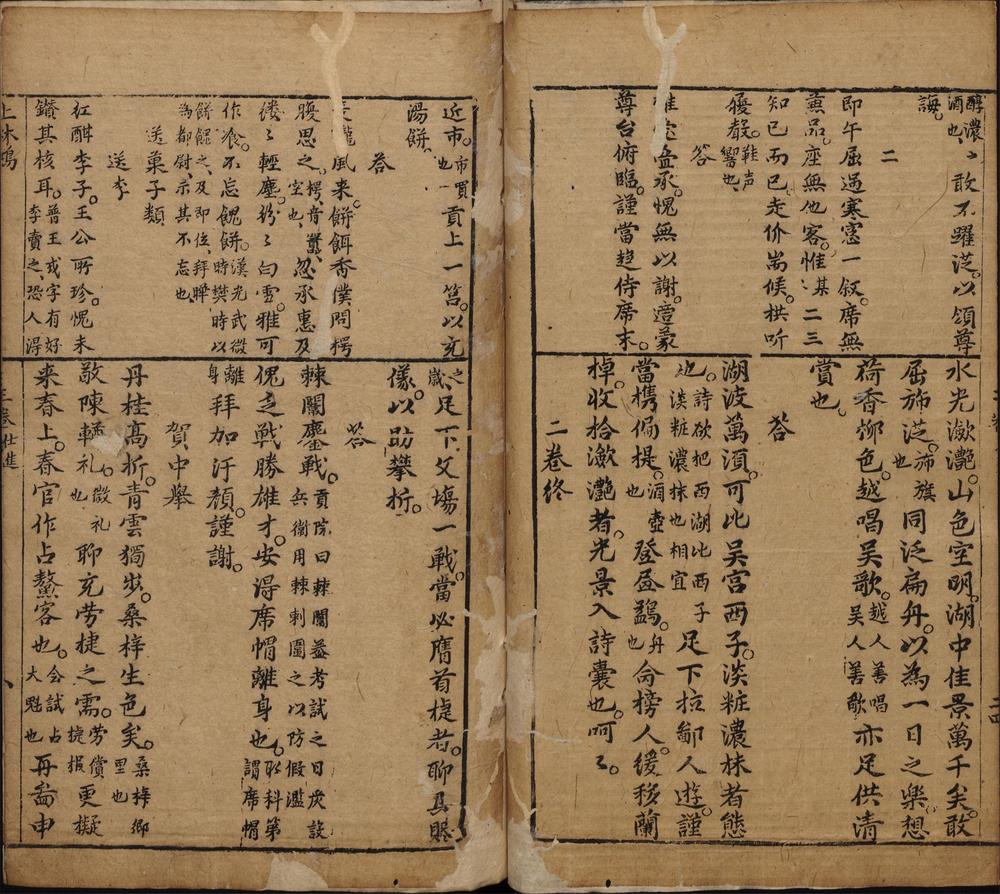 醇濃〻敢不躍茫。以領尊
酒也、
誨。
二
即午屈過寒窓一叙。席無
薰品。座無他客。惟某二三
知已而已走价耑候。拱听
履聲。
鞋声
响也
答
盛承。愧無以謝。荳蒙
尊台俯臨。謹當趍侍席末。
水光瀲灧。山色空明。湖中佳景萬千矣。敢
屈斾茫。
斾旗
也
同泛扁舟。以為一日之樂。想
荷香柳色。越唱吳歌。
越人善唱
吳人善歌
亦足供清
賞也。
答
湖波萬頃。可比吳宮西子。淡粧濃抹者態
也。
詩欲把西湖比西子
淡粧濃抹也相宜
足下拉鄙人遊。謹
當携偏提。
酒壺
也
登昼鷁。
舟
也
命榜人。緩移蘭
棹。收拾瀲灧者。光景入詩囊也。呵〻。
二卷終
近市。
市買
也
貢上一筥。以充
湯餅、
答
風来。餅餌香僕問樗
腹思之。
樗、音
空也、
忽承惠及
縷〻輕塵。紛〻白雪。雅可
作飡。不忘餽餅。
漢光武微
時樊時以
餅餽之、及即位、拜曄
為都尉、示其不忘也
送菓子類
送李
紅酣李子。王公所珍。愧未
鑚其核耳。
晉王戎字有好
李賣之、恐人淂
之
歲、
足下文塲一戰。當必膺首㨗者。聊具贐
儀。以助攀折。
答
棘闈鏖戰。
貢院曰棘闈蓋考試之日炭設
兵衛用棘刺圍之以防假濫
愧乏戰勝雄才。安淂席帽離身也。
耿科第
謂席帽
離
身
拜加汙顏。謹謝。
賀中舉
丹桂高折。青雲獨步。桑梓生色矣。
桑梓鄉
里也
敬陳輶礼。
微礼
也
聊充劳㨗之需。
劳償
㨗报
更擬
来春上。春官作占鰲客也。
会試占
大魁也
再耑申
三卷仕進